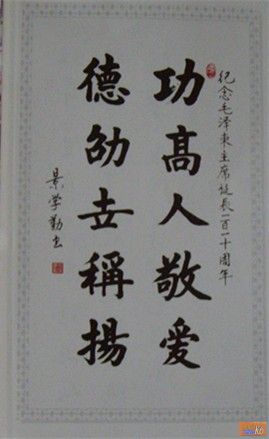 纪念毛泽東主席诞辰一百一十周年
功髙人敬爱
德劭世稱揚
景学勤书